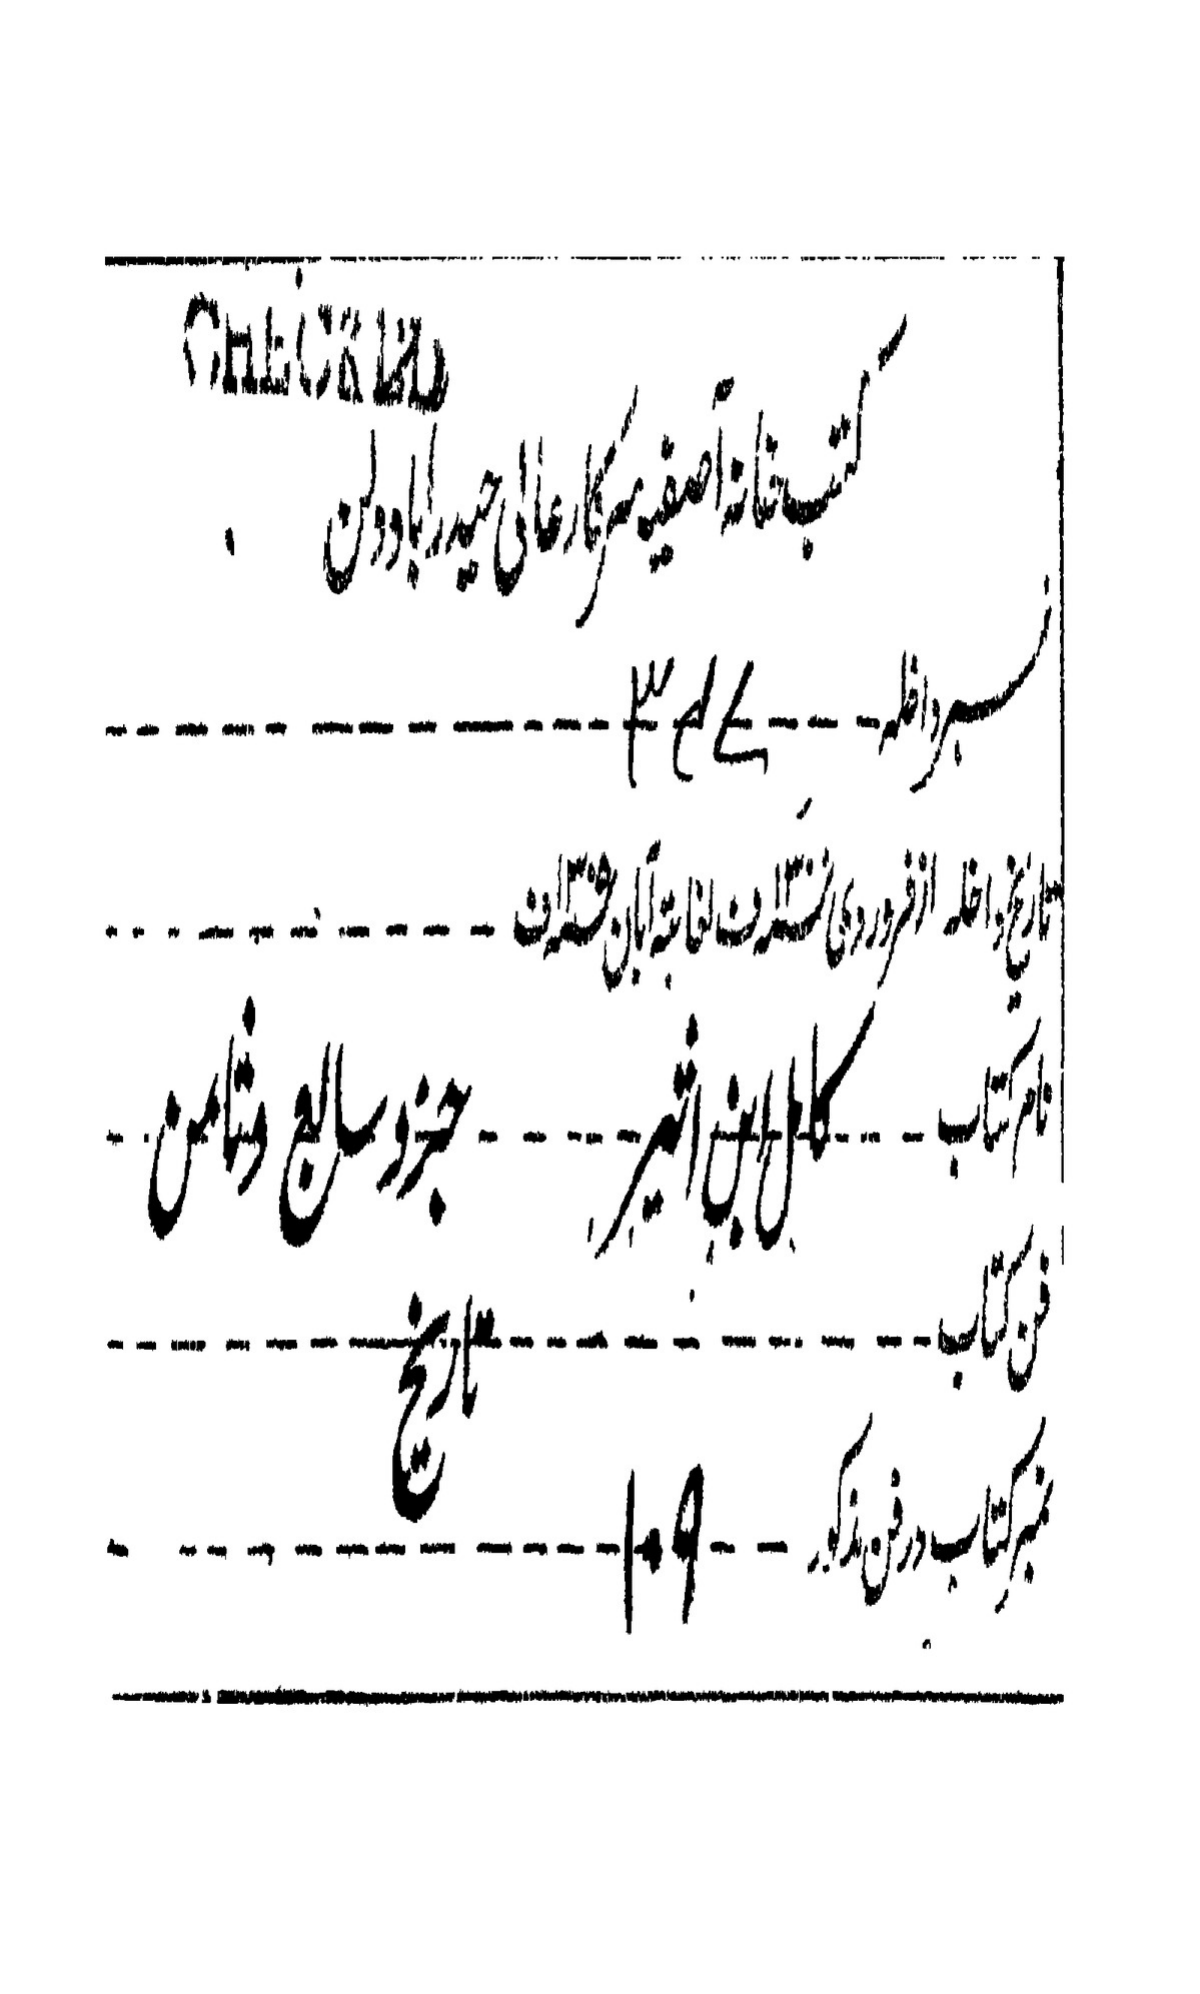 CHECKED
کتب خانۂ آصفیہ سرکار عالی حیدرآباد دکن
نمبر داخلہ
تاریخ داخلہ از فروردی ۱۳ ف لغایتہ آبان ۱۳۰۵ ف
نام کتاب کامل ابن اثیر جزو سابع و ثامن
فن کتاب تاریخ
نمبر کتاب در فن مذکور ۱۰۹